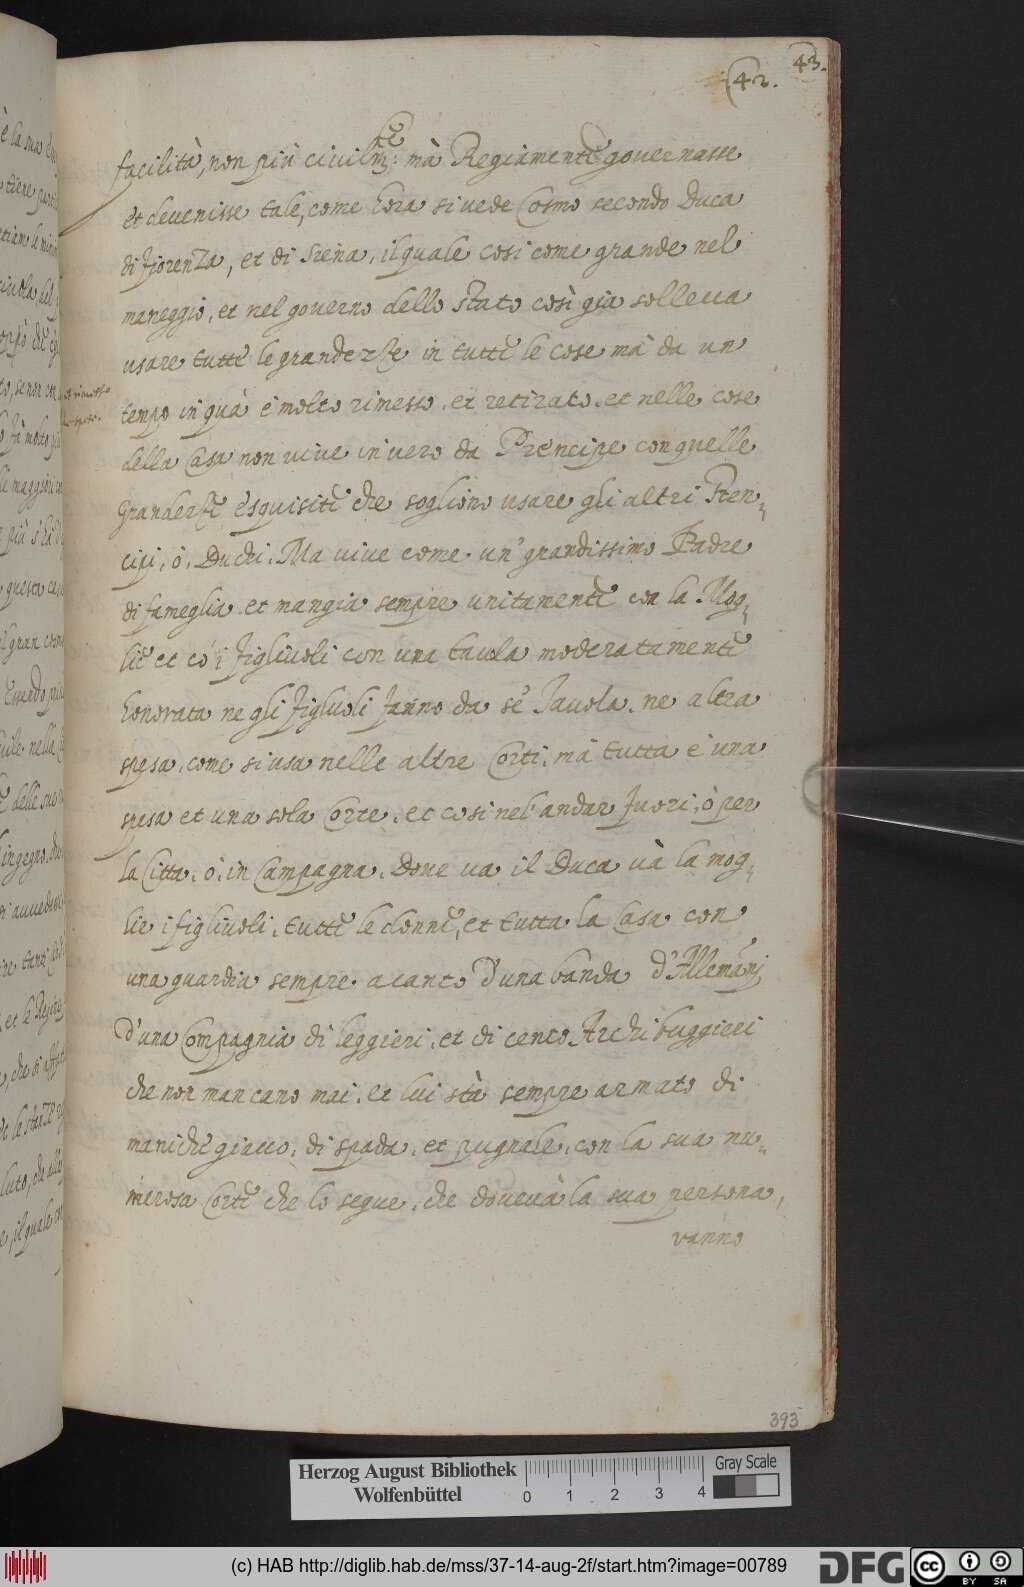 43.
42.
facilità, non più civilm.te mà Regiamente governasse
et devenisse tale, come hora si vede Cosmo secondo Duca
di fiorenza, et di Siena, il quale cosi come grande nel
maneggio, et nel governo dello stato così già solleva
usare tutte le grandezze in tutte le cose mà da un
tempo in quà è molto rimesso, et retirato, et nelle cose
della Casa non vive in vero da Prencipe con quelle
Grandezze esquisite che sogliono usare gli altri Pren-
cipi, ò, Duchi. Ma vive come un' grandissimo Padre
di fameglia et mangia sempre unitamente con la Mog-
lie et có i figliuoli con una tavola moderatamente
honorata ne gli figliuoli fanno da sé Tavola, ne altra
spesa, come si usa nelle altre Corti, mà tutta è una
spesa et una sola Corte, et cosi nel' andar fuori, ò per
la Citta, ò, in Campagna, Dove va il Duca và la mog-
lie i figliuoli, tutte le donne, et tutta la Casa con
una guardia sempre a canto d'una banda d'Allemani
d'una Compagnia di leggieri, et di cento Archibuggieri
che non mancano mai, et lui stà sempre armato di
maniche giacco, di spada, et pugnale, con la sua nu-
merosa Corte che lo segue, che dove và la sua persona,
vanno
393
Herzog August Bibliothek
Wolfenbüttel
0 1 2 3 4
Gray Scale
(c) HAB http://diglib.hab.de/mss/37-14-aug-2f/start.htm?image=00789
DFG
cc BY SA